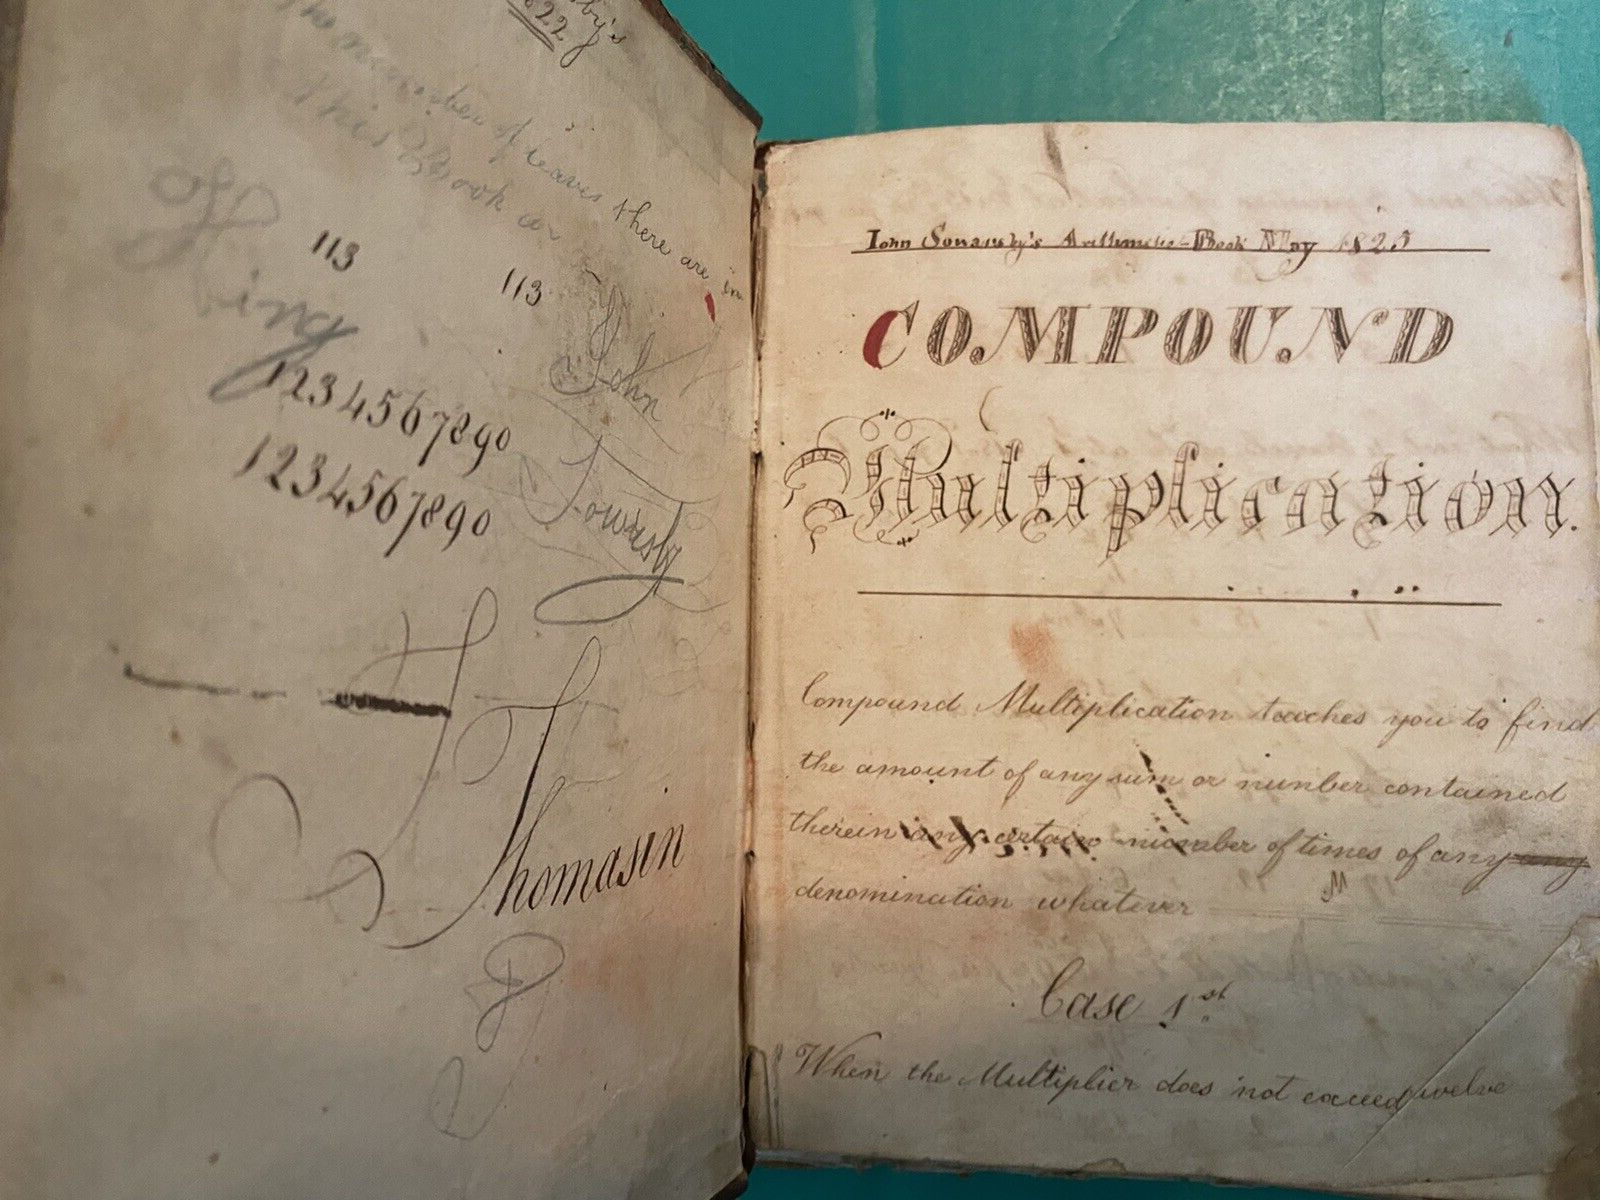 by's
1822
The number of leaves there are in
this Book are
113
113
John
1234567890
1234567890
Thomasin
John Sowarsby's Arithmetic Book May 1825
COMPOUND
Multiplication.
Compound Multiplication teaches you to find
the amount of any sum or number contained
therein any certain number of times of any any
denomination whatever
Case 1st
When the Multiplier does not exceed twelve